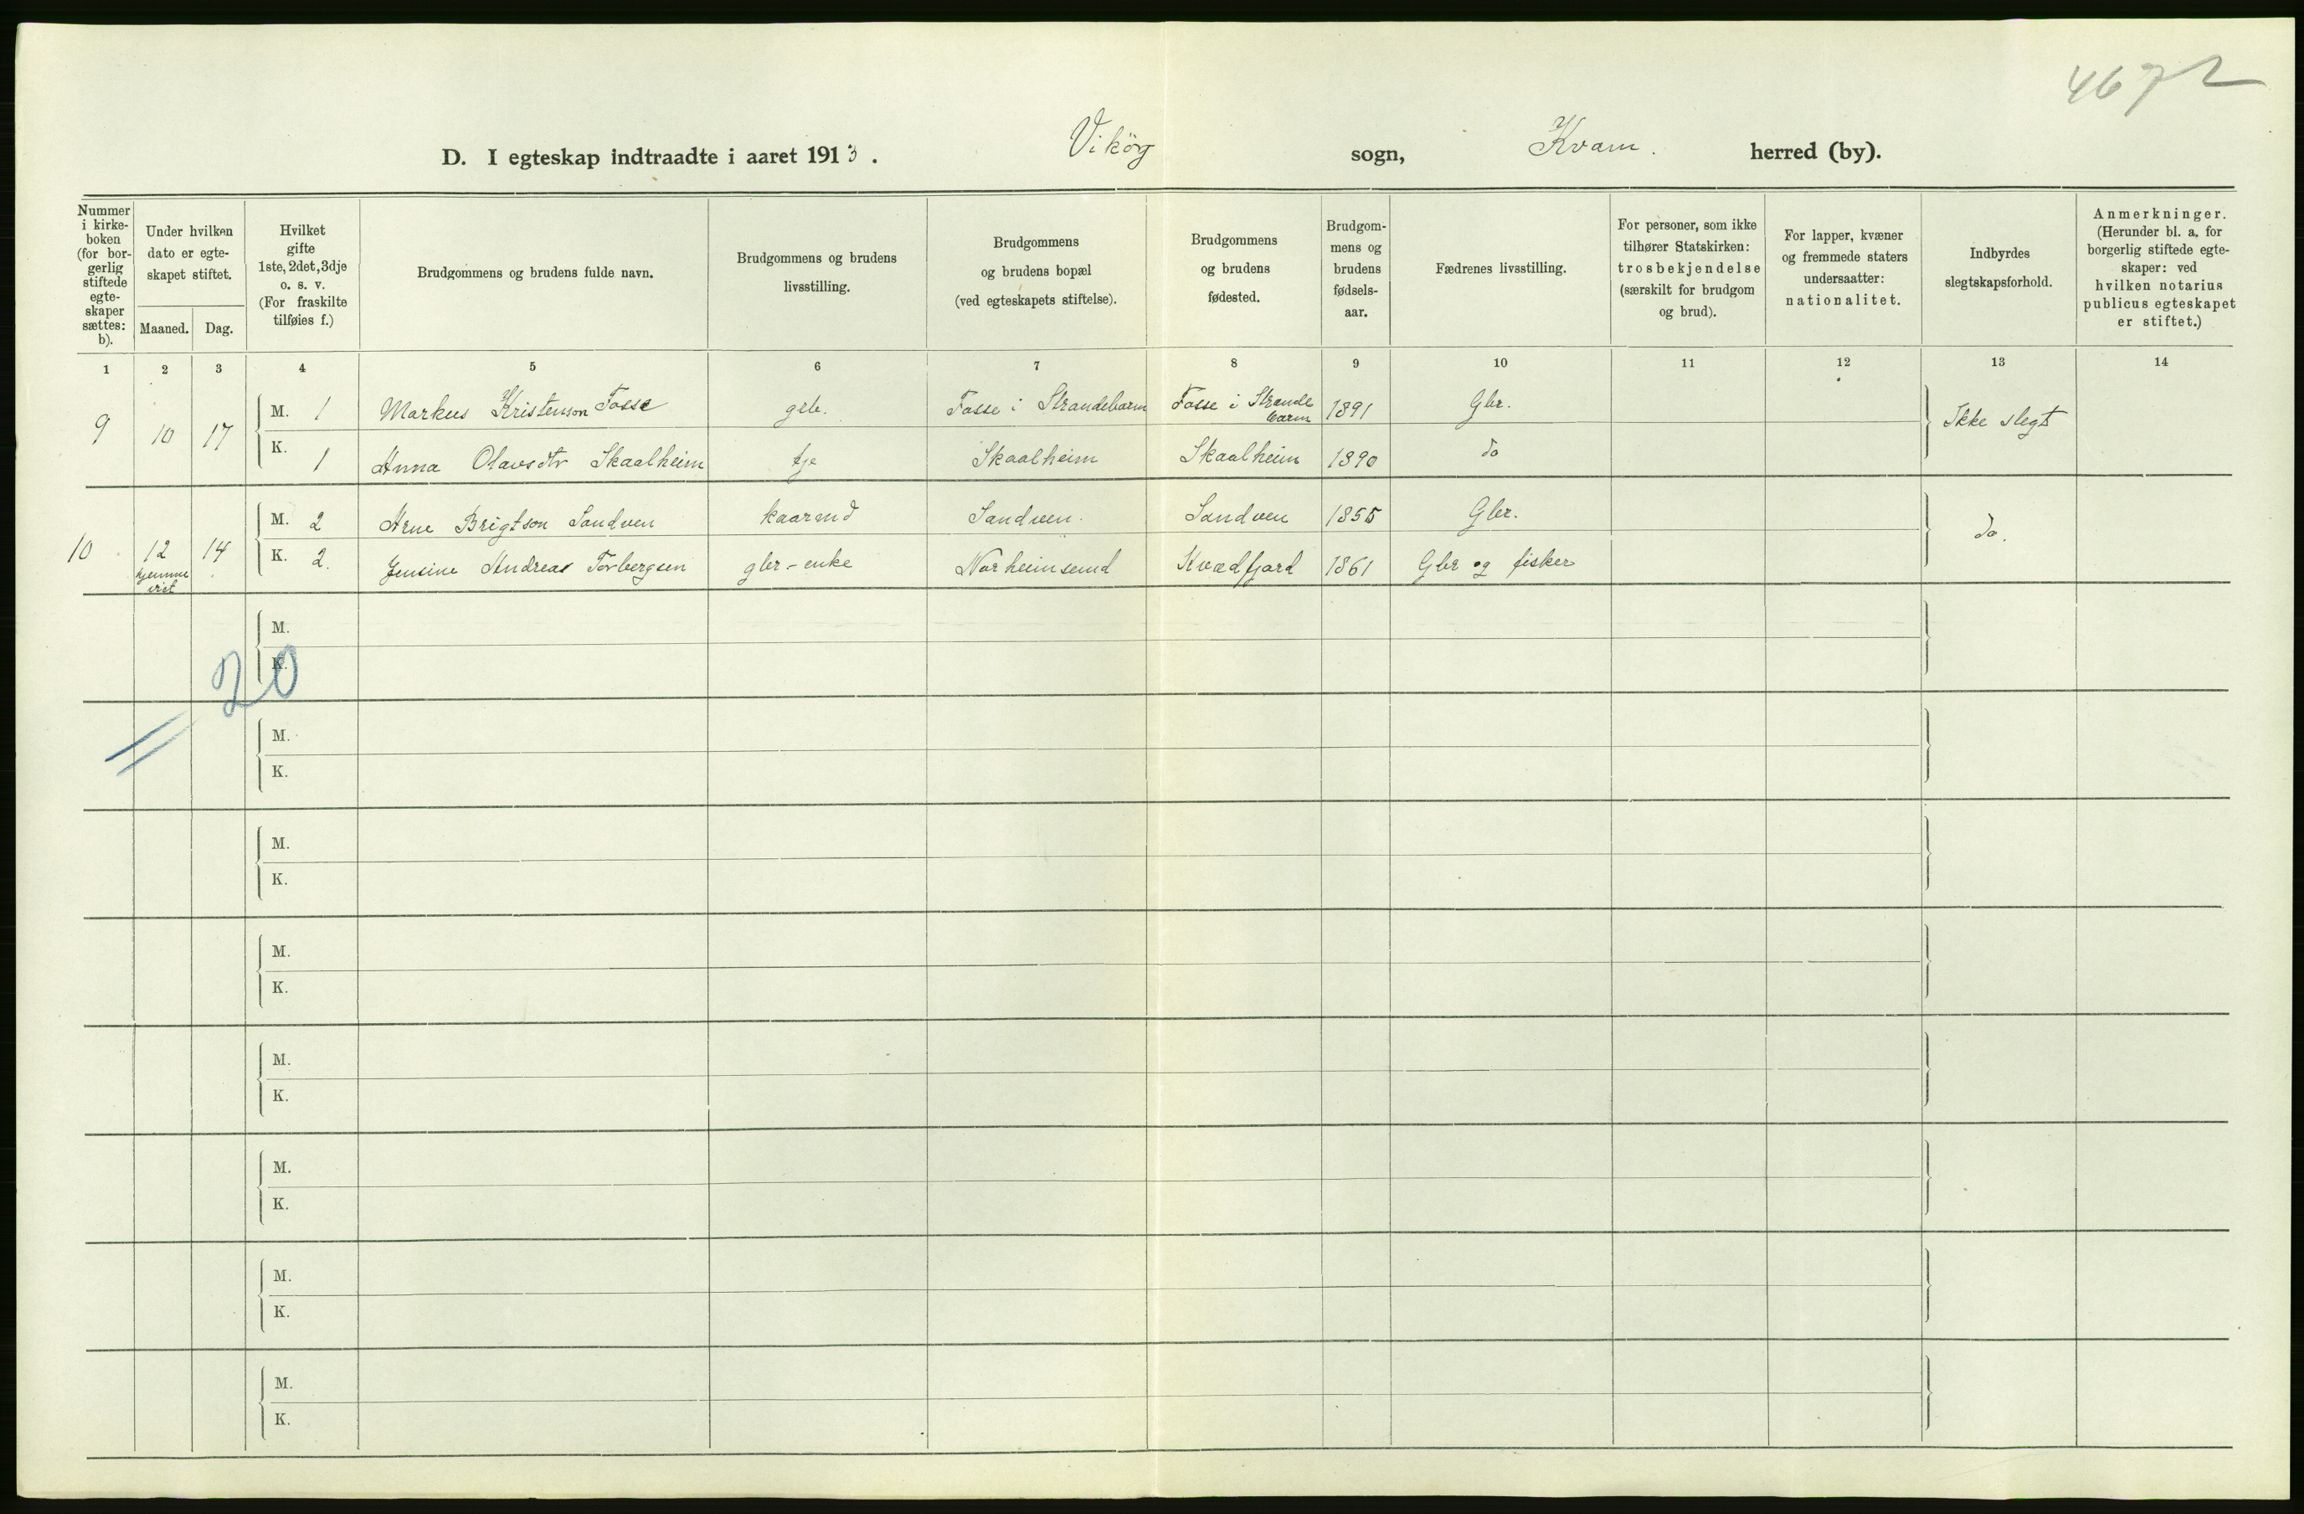 4672
D. I egteskap indtraadte i aaret 1913. Vikör sogn, Kvam. herred (by).
Nummer i kirke- boken (for bor- gerlig stiftede egte- skaper sættes: b).
Under hvilken dato er egte- skapet stiftet.
Maaned. Dag.
Hvilket gifte 1ste, 2det, 3dje o. s. v. (For fraskilte tilføies f.)
Brudgommens og brudens fulde navn.
Brudgommens og brudens livsstilling.
Brudgommens og brudens bopæl (ved egteskapets stiftelse).
Brudgommens og brudens fødested.
Brudgom- mens og brudens fødsels- aar.
Fædrenes livsstilling.
For personer, som ikke tilhører Statskirken: trosbekjendelse (særskilt for brudgom og brud).
For lapper, kvæner og fremmede staters undersaatter: nationalitet.
Indbyrdes slegtskapsforhold.
Anmerkninger. (Herunder bl. a. for borgerlig stiftede egte- skaper: ved hvilken notarius publicus egteskapet er stiftet.)
1 2 3 4 5 6 7 8 9 10 11 12 13 14
9 10 17 M. 1 Markus Kristenson Fosse Fosse i Strandebarm Fosse i Strande barm 1891 Gbr. Ikke slegt
K. 1 Anna Olavsdtr Skaalheim tje Skaalheim Skaalheim 1890 do
10 12 14 M. 2 Arne Brigtson Sandven kaarmd Sandven. Sandven 1855 Gbr. do.
hjemme viet K. 2. Jensine Andrea Torbergsen gbr-enke Norheimsund Kvædfjord 1861 Gbr og fisker
M.
K.
20
M.
K.
M.
K.
M.
K.
M.
K.
M.
K.
M.
K.
M.
K.